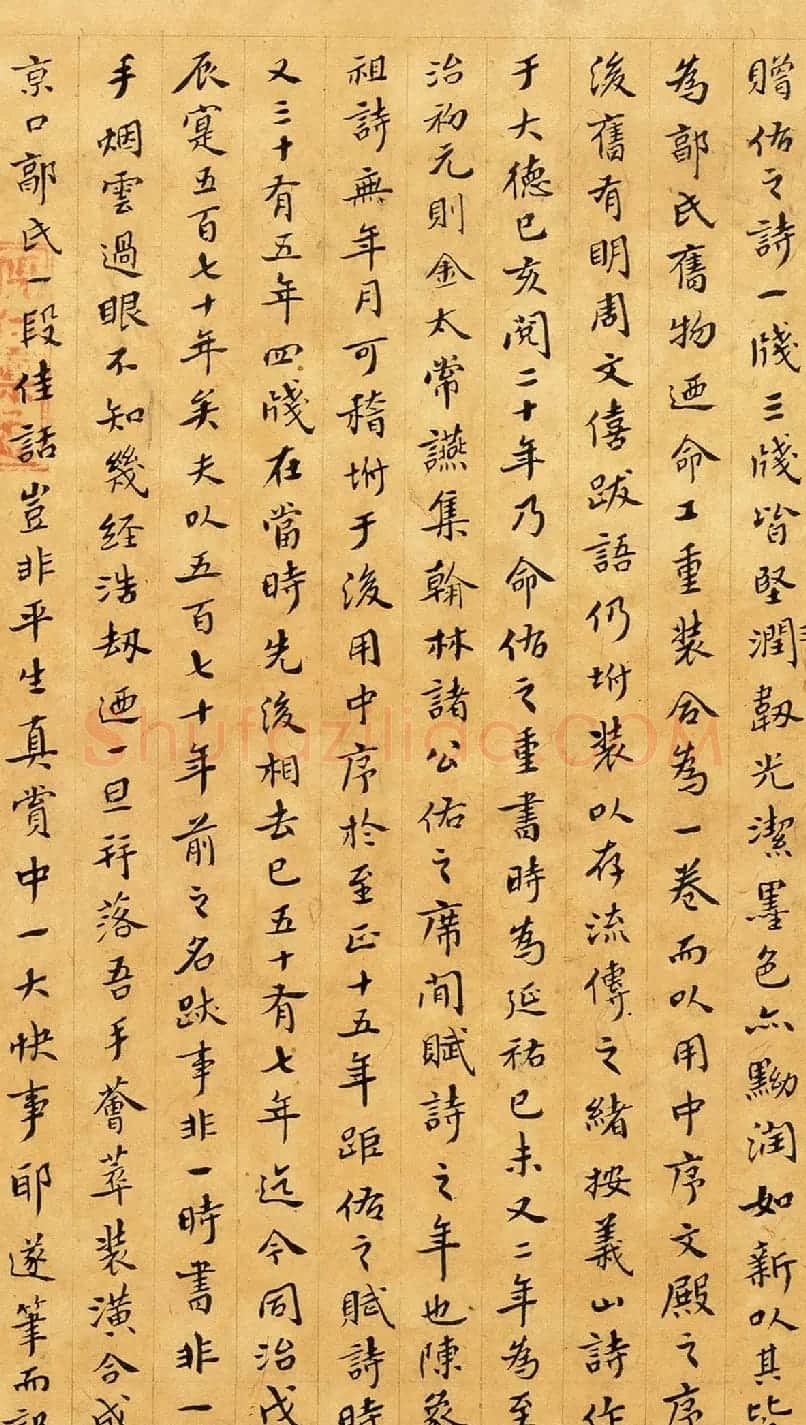 贈佑之詩一牋三牋皆堅潤韌光潔墨色亦黝润如新以其
為郭氏舊物迺命工重装合為一卷而以用中序文殿之序
後舊有明周文僖跋語仍坿装以存流傳之緒按義山詩作
于大德己亥閲二十年乃命佑之重書時為延祐己未又二年為至
治初元則金太常讌集翰林諸公佑之席間賦詩之年也陳
祖詩無年月可稽坿于後用中序於至正十五年距佑之賦詩時
又三十有五年四牋在當時先後相去已五十有七年迄今同治戊
辰寔五百七十年矣夫以五百七十年前之名跡事非一時書非一
手烟雲過眼不知幾经浩劫迺一旦并落吾手薈萃装潢合成
京口郭氏一段佳話豈非平生真賞中一大快事耶遂筆而記
Shufaziliao.COM